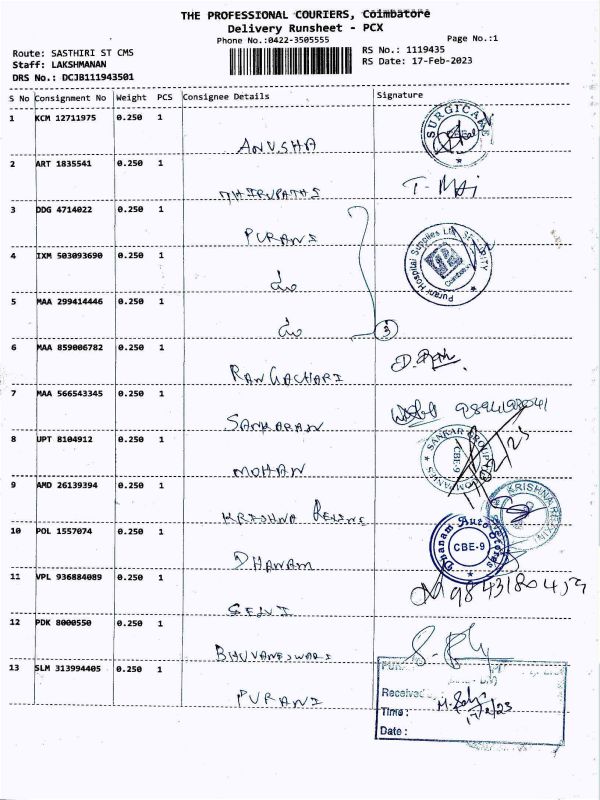 THE PROFESSIONAL COURIERS, Coimbatore
Delivery Runsheet - PCX
Phone No.:0422-3505555
Page No.:1
Route: SASTHIRI ST CMS
Staff: LAKSHMANAN
DRS No.: DCJB111943501
RS No.: 1119435
RS Date: 17-Feb-2023
S No Consignment No Weight PCS Consignee Details Signature
1 KCM 12711975 0.250 1 ANUSHA
SURGICARE
2 ART 1835541 0.250 1 THIRUPATHI
3 DDG 4714022 0.250 1 PURANI
Purani Hospital Supplies Ltd SECURITY
4 IXM 503093690 0.250 1
5 MAA 299414446 0.250 1
3
6 MAA 859006782 0.250 1 RANGACHARI
7 MAA 566543345 0.250 1 SANKARAN
8 UPT 8104912 0.250 1 MOHAN
SANKAR GROUP COMPANIES CBE-9
9 AMD 26139394 0.250 1 KRISHNA
KRISHNA
10 POL 1557074 0.250 1 DHANAM
Dhanam Auto Stores CBE-9
11 VPL 936884089 0.250 1 SELVI
12 PDK 8000550 0.250 1 BHUVANESWARI
13 SLM 313994405 0.250 1 PURANI
Received
Time :
Date :